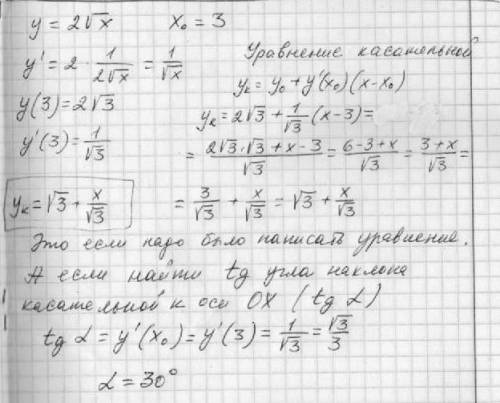 y = 2√x    x₀ = 3
y' = 2 · 1/(2√x) = 1/√x
y(3) = 2√3
y'(3) = 1/√3
yк = √3 + x/√3
Уравнение касательной
yк = y₀ + y'(x₀)(x - x₀)
yк = 2√3 + 1/√3 (x - 3) =
= (2√3 · √3 + x - 3)/√3 = (6 - 3 + x)/√3 = (3 + x)/√3 =
= 3/√3 + x/√3 = √3 + x/√3
Это если надо было написать уравнение.
А если найти tg угла наклона
касательной к оси OX (tg α)
tg α = y'(x₀) = y'(3) = 1/√3 = √3/3
α = 30°